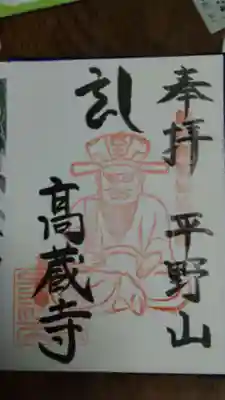 奉拝 平野山
高蔵寺